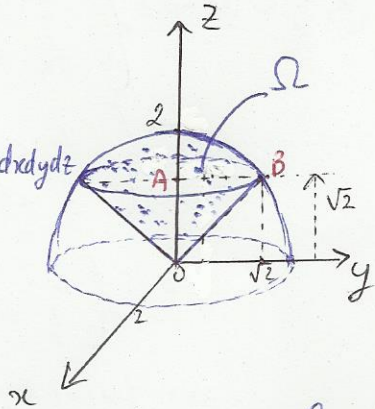 z
Ω
2
dxdydz
A
B
√2
0
√2
y
2
x